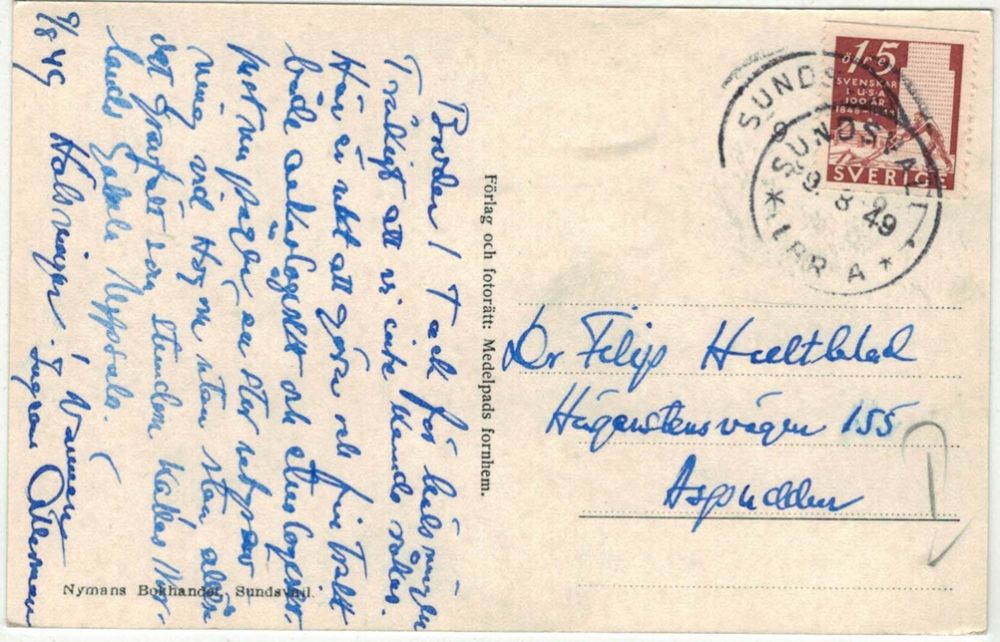 9/8 49
Broder! Tack för hälsningen
Tråkigt att vi icke kunde råkas.
Här är rikt att göra och fritalt
både arkeologiskt och etnologiskt.
Just nu pågår en stor utgräv-
ning vid Högom utan stan alltså
det gravfält som stundom kallas Norr-
lands Gamla Uppsala.
Hälsningar!
Förlag och fotorätt: Medelpads fornhem.
Nymans Bokhandel, Sundsvall.
15
ÖRE
SVENSKAR
I U.S.A
100 ÅR
SVERIGE
SUNDSVALL
9. 8 49
LBR A
Dr Filip Hultblad
Hägerstensvägen 155
Aspudden